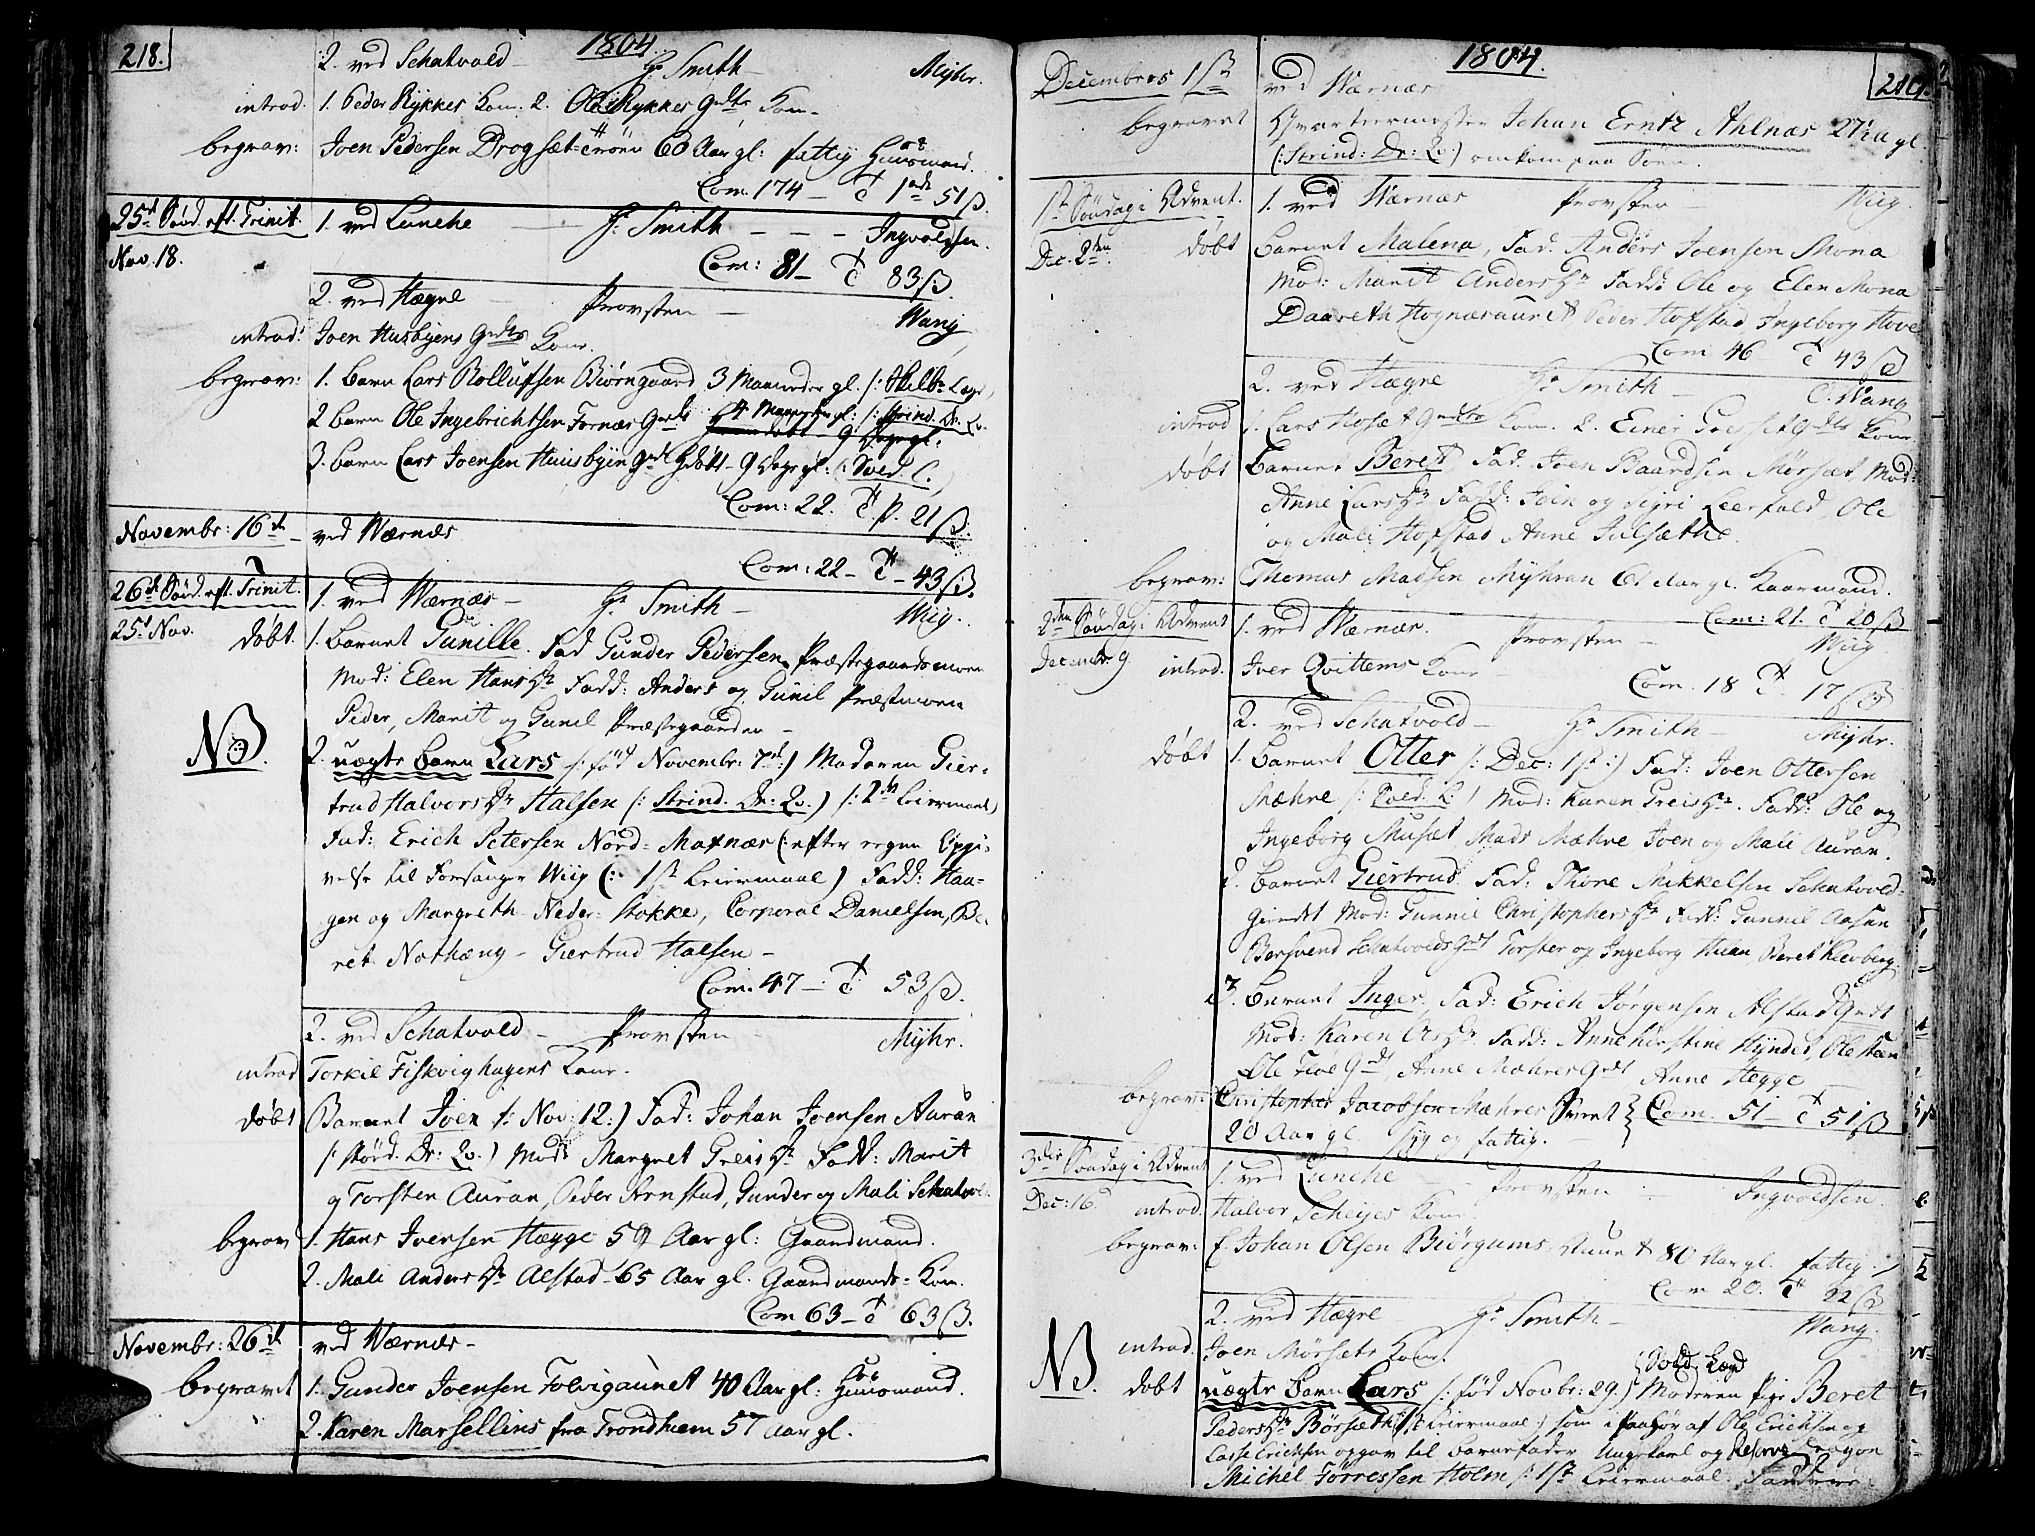 218.
1804.
2. ved Schatvold — Hr. Smith — Myhr.
introd. 1. Peder Rykkes Kone. 2. Ole Rykkes Grdts Kone
begrav: Joen Pedersen Drogsæt= 60 Aar gl: fattig Huusmand.
Com. 174 — 51 ß.
25d Sønd. eft. Trinit. 1. ved Lunche — Hr. Smith — — — Ingvoldsen.
Nov. 18.
Com: 81 — 83 ß.
2. ved Hægre — Provsten — Wang
introd: Joen Husbyens Grdts Kone.
begrav: 1. barn Lars Rollufsen Biørngaard 3 Maaneder gl.
2 barn Ole Ingebrichtsen Fornæs Grdts
3. barn Lars Joensen Huusbyin 9 Dage gl:
Com: 22. 21 ß.
Novembr: 16d ved Wærnæs
Com: 22 — 43 ß.
26d Sønd. eft. Trinit. 1. ved Wærnæs — Hr. Smith — Wiig.
25d Nov. døbt. 1. Barnet Gunille. Fad Gunder Pedersen Præstegaardsmoen
Mod: Elen Hans Dr Fadd: Anders og Gunil Præstmoen
Peder, Marit og Gunil Præstegaarden —
NB. 2. uægte barn Lars /: fød Novembr: 7d:/ Moderen Gier=
trud Halvors Dr Halsen (: Strind. Dr: Lv.) /: 2det Leiermaal/
Fad: Erich Petersen Nord= (: efter egen Opgi=
velse til Forsanger Wiig (: 1st Leiermaal) Fadd: Haa=
gen og Margreth Neder= Stokke, Corporal Danielsen, Be=
ret Nothæng — Giertrud Halsen —
Com. 47 — 53 ß.
2. ved Schatvold — Provsten — Myhr.
introd Torkil Fiskvighagens Kone.
døbt Barnet Joen /: Nov: 12:/ Fad: Johan Joensen Auran
/: Dr: Lv.) Mod: Margret Greis Dr Fadd: Marit
og Torsten Auran, Peder Arnstad, Gunder og Mali Schatvol.
begrav 1. Hans Joensen Hægge 59 Aar gl: Gaardmand.
2. Mali Anders Dr Alstad 65 Aar gl. Gaardmands= Kone.
Com 63 — 63 ß.
Novembr: 26d ved Wærnæs —
begravet 1. Gunder Joensen Folvigaunet 40 Aar gl: Huusmand.
2. Karen Marsellins fra Trondhiem 57 Aar gl.
1804.
Decembres 1st ved Wærnæs
begravet Qvarteermester Johan Erntz Ahlnæs 27½ a gl.
(: Strind: Dr: Lv:) omkom paa Søen.
1st Søndag i Advent. 1. ved Wærnæs Provsten — Wiig.
Dec. 2den. døbt Barnet Malena, Fad. Anders Joensen Mona
Mod: Marit Anders Dr Fadd: Ole og Elen Mona
Daareth Hognæsaunet Peder Hofstad Ingeborg Hove
Com 46 43 ß
2. ved Hægre Hr. Smith — C. Wang
introd 1. Lars Hosæt Grdts Kone. 2. Einer Kone.
døbt Barnet Beret, Fad. Joen Baardsen Mørsæt, Mod:
Anne Lars Dr Fadd: Join og Sigri Leerfald, Ole
og Mali Hofstad Anne Julsethe.
begrav: Thomas Madsen Myhran 61 Aar gl. Kaarmand.
Com: 21. 20 ß
2den Søndag i Advent 1. ved Wærnæs. Provsten — Wiig.
Decembr. 9. introd. Iver Qvittems Kone — Com. 18 17 ß
2. ved Schatvold — Hr. Smith — Myhr.
døbt 1. Barnet Otter /: Dec: 1st:/ Fad: Joen Ottersen
Mæhre /: / Mod: Karen Greis Dr. Fadd: Ole og
Ingeborg Musæt Mads Mæhre Joen og Mali Auran.
2. Barnet Giertrud. Fad: Thore Mikkelsen Schatvold=
Mod: Gunnil Christophers Dr Fadd: Gunnil Aasan
Bersvend Schatvolds Grdt Torster og Ingeborg Beret Klevberg
3. Barnet Inger, Fad: Erich Jørgensen Alstad Grdt
Mod: Karen Dr Fadd: Anne Kirstine Hynder, Ole
Ole Grdt, Anne Mæhres Grdt Anne Hegge
begrav: Christopher Jacobsen Mæhres Com. 51 — 51 ß
20 Aar gl. syg og fattig.
3die Søndag i Advent 1. ved Lunche — Provsten — Ingvoldsen
Dec: 16d introd. Halvor Scheyes Kone
begrav: Johan Olsen Biørgums 80 Aar gl. fattig
Com 20. 22 ß
2. ved Hægre Hr. Smith — Wang.
introd. Joen Mørsæts Kone.
NB. døbt uægte barn Lars /: fød Novbr: 29./ Moderen Pige Beret
Peders Dr Børsæth Leiermaal:) som i Paahør af Ole Erichsen og
Lasse Erichsen opgav til Barnefader Ungekarl og Reserve Dragon
Michel Tørressen Holm /: 1st Leiermaal.